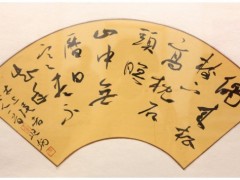 偶來松
樹下
高枕石
頭眠
山中無
曆日
寒盡不
知年